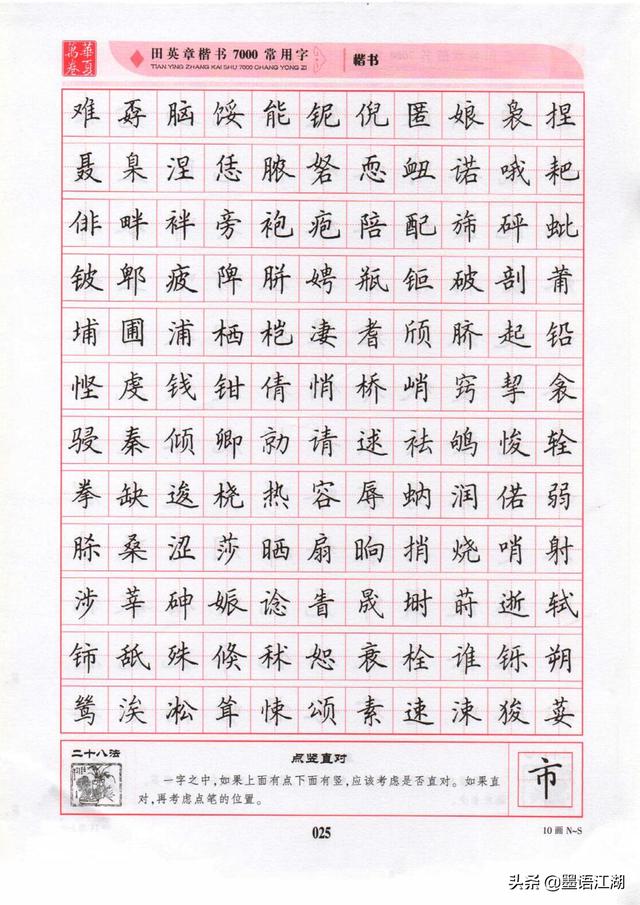 華夏萬卷
田英章楷书 7000 常用字
TIAN YING ZHANG KAI SHU 7000 CHANG YONG ZI
楷书
难 孬 脑 馁 能 铌 倪 匿 娘 袅 捏
聂 臬 涅 恁 脓 砮 恧 衄 诺 哦 耙
俳 畔 袢 旁 袍 疱 陪 配 旆 砰 蚍
铍 郫 疲 陴 胼 娉 瓶 钷 破 剖 莆
埔 圃 浦 栖 桤 凄 耆 颀 脐 起 铅
悭 虔 钱 钳 倩 悄 桥 峭 窍 挈 衾
骎 秦 倾 卿 勍 请 逑 祛 鸲 悛 辁
拳 缺 逡 桡 热 容 辱 蚋 润 偌 弱
脎 桑 涩 莎 晒 扇 晌 捎 烧 哨 射
涉 莘 砷 娠 谂 眚 晟 埘 莳 逝 轼
铈 舐 殊 倏 秫 恕 衰 栓 谁 铄 朔
鸶 涘 凇 耸 悚 颂 素 速 涑 狻 荽
二十八法
点竖直对
一字之中,如果上面有点下面有竖,应该考虑是否直对。如果直
对,再考虑点笔的位置。
市
025
10 画 N~S
头条 @墨语江湖